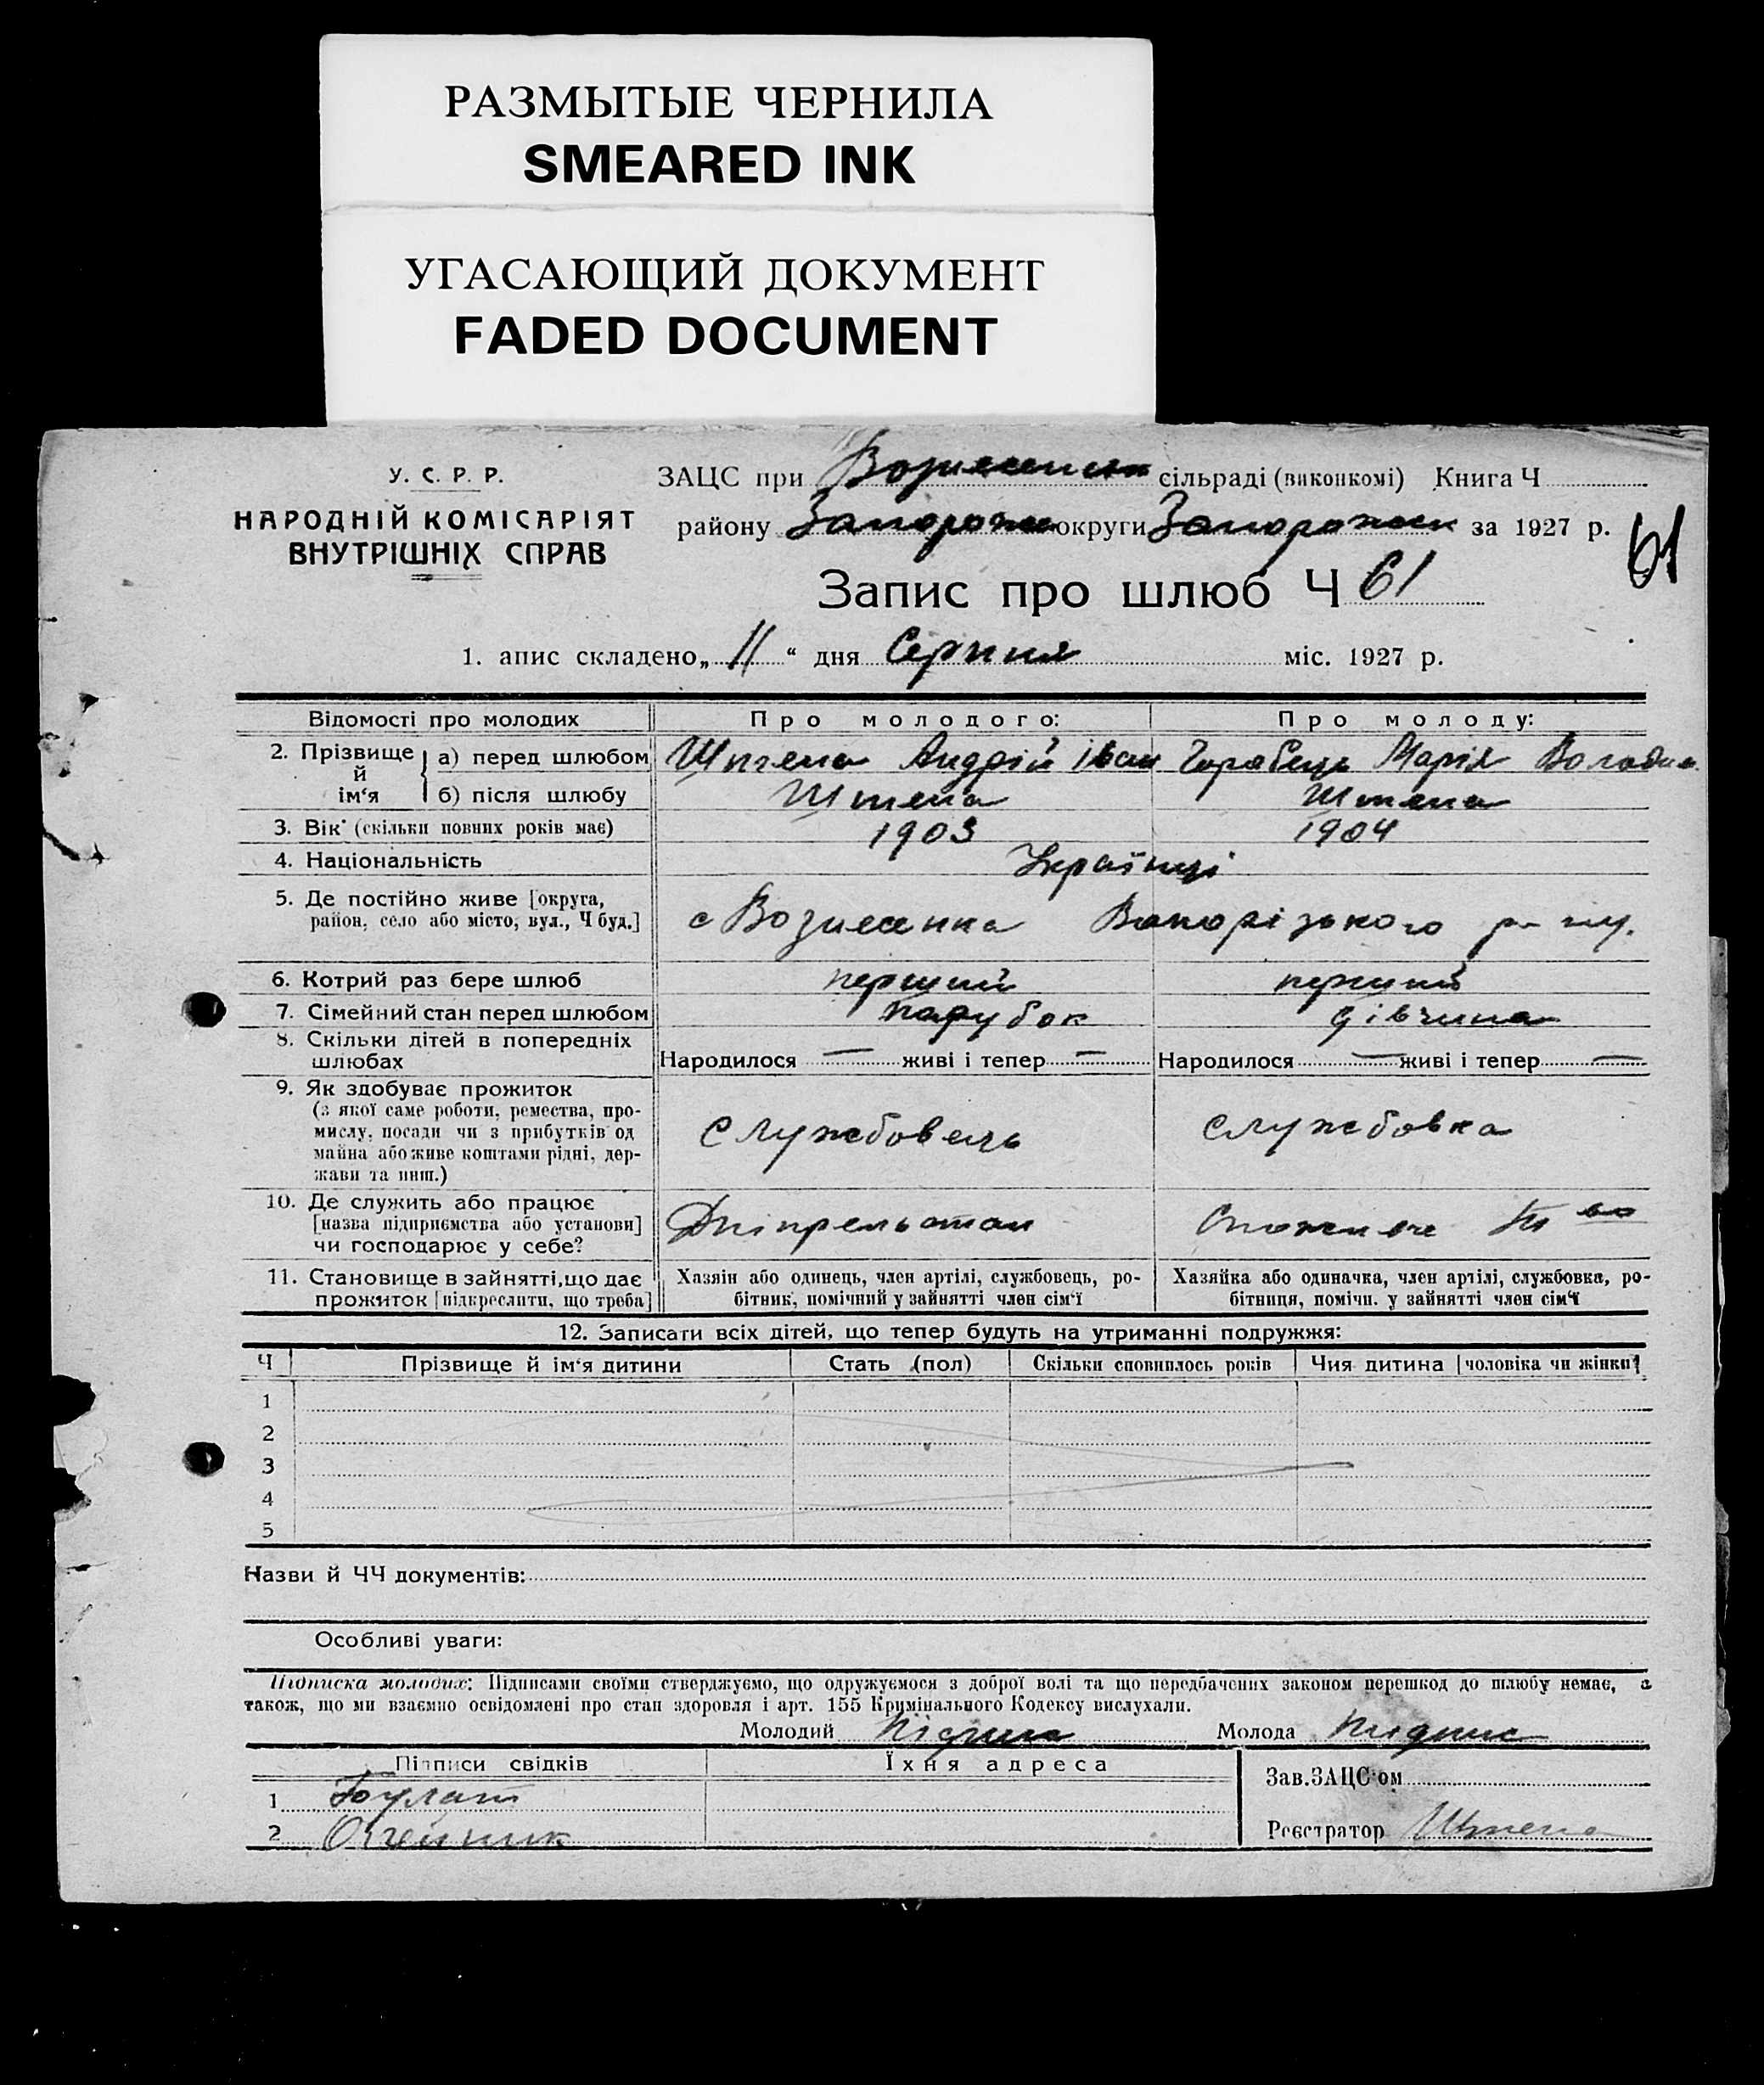 РАЗМЫТЫЕ ЧЕРНИЛА
SMEARED INK
УГАСАЮЩИЙ ДОКУМЕНТ
FADED DOCUMENT
У. С. Р. Р.
НАРОДНІЙ КОМІСАРІЯТ
ВНУТРІШНІХ СПРАВ
ЗАЦС при Вознесенськ сільраді (виконкомі) Книга Ч
району Запорожск округи Запорожск за 1927 р.
61
Запис про шлюб Ч 61
1. апис складено „ 11 “ дня Серпня міс. 1927 р.
Відомості про молодих Про молодого: Про молоду:
2. Прізвище й ім‘я а) перед шлюбом Штепа Андрій Іван Марія Володим.
б) після шлюбу Штепа Штепа
3. Вік (скільки повних років має) 1903 1904
4. Національність Українці
5. Де постійно живе [округа,
район, село або місто, вул., Ч буд.] с Вознесенка Запорізького р-ну.
6. Котрий раз бере шлюб перший перший
7. Сімейний стан перед шлюбом парубок дівчина
8. Скільки дітей в попередніх
шлюбах Народилося — живі і тепер — Народилося — живі і тепер —
9. Як здобуває прожиток
(з якої саме роботи, ремества, про-
мислу, посади чи з прибутків од
майна або живе коштами рідні, дер-
жави та инш.) Службовець Службовка
10. Де служить або працює
[назва підприємства або установи]
чи господарює у себе? Дніпрельстан Споживче т во
11. Становище в зайнятті, що дає
прожиток [підкреслити, що треба]
Хазяїн або одинець, член артілі, службовець, ро-
бітник, помічний у зайнятті член сім‘ї
Хазяйка або одиначка, член артілі, службовка, ро-
бітниця, помічн. у зайнятті член сім‘ї
12. Записати всіх дітей, що тепер будуть на утриманні подружжя:
Ч Прізвище й ім‘я дитини Стать (пол) Скільки сповнилось років Чия дитина [чоловіка чи жінки]
1
2
3
4
5
Назви й ЧЧ документів:
Особливі уваги:
Підписка молодих: Підписами своїми стверджуємо, що одружуємося з доброї волі та що передбачених законом перешкод до шлюбу немає, а
також, що ми взаємно освідомлені про стан здоровля і арт. 155 Кримінального Кодексу вислухали.
Молодий Підпис Молода Підпис
Підписи свідків Їхня адреса
Зав. ЗАЦС‘ом
1 Булат
2 Олейник
Реєстратор Штепа